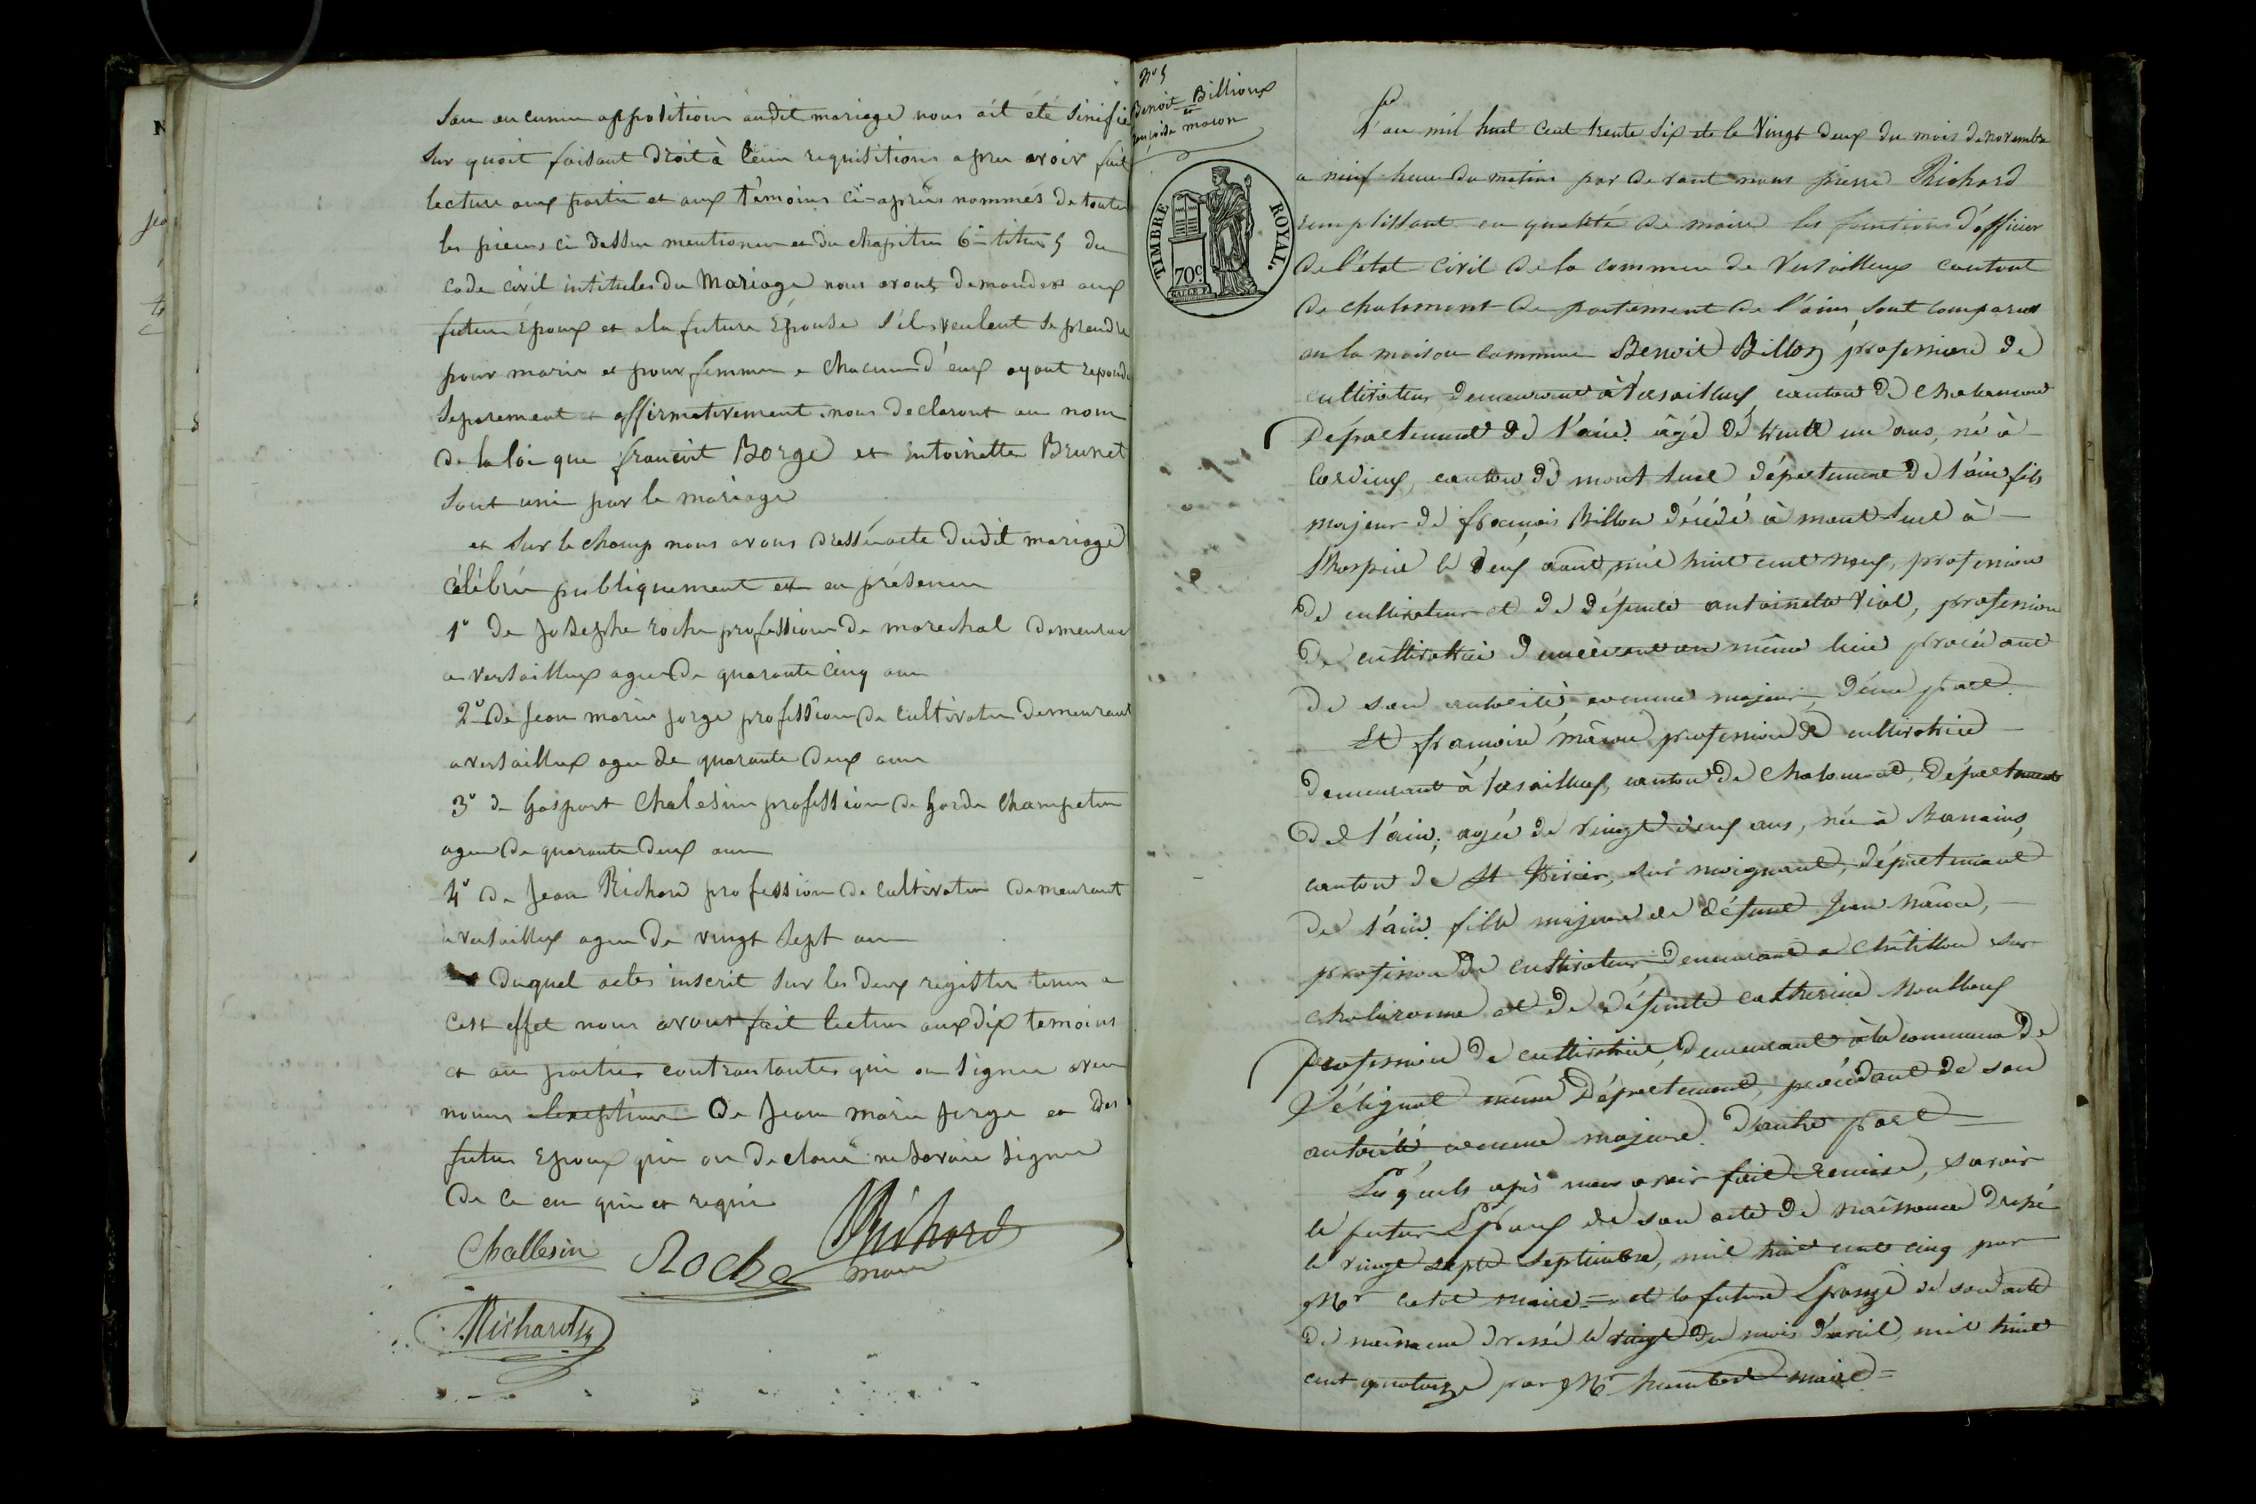 San aucunne opposition audit mariage nous ait été sinifié
Sur quoit faisant Droit à leur requisitions apres avoir fait
lecture aux partie et aux témoins ci-après nommés de toutes
les pieces ci dessu mentionen et du chapitre 6e titre 5 du
code civil intitules du Mariage nous avons demander aux
futur époux et a la future Épouse s'ils veulent se prendre
pour marie et pour femme chacun d'eux ayant repondu
separement et affirmativement nous declaront au nom
de la loi que francoit Borge et Entoinette Brunet
sont uni par le mariage
et sur le champ nous avons dressé acte dudit mariage
célébré publiquement et en présence
1° De Josephe roche profession de marechal demeurant
a versailleux agee De quarante cinq ans
2° De Jean marie Jorge profession de cultivateur demeurant
a versailleux agee de quarante deux ans
3° de Gaspart Chalesin profession de Garde Champetre
agee De quarante deux ans
4° De Jean Richard profession de cultivateur demeurant
a versailleux agee De vingt sept ans
Duquel actes inscrit sur les deux registre tenu a
cest effet nous avons fait lecture aux dix temoins
et au parties contractantes qui on signer avec
nous Lexeption De Jean marie Jorge et des
futur Epoux qui on declaré ne savoir signer
De ce en qui et requi
Challesin Roche Richard
maire
Richard
N° 5
Benoit Billioux
et
françoise macon
TIMBRE ROYAL.
70c.
L'an mil huit cent trente six et le Vingt deux du mois de novembre
a neuf heure du matin par devant nous pierre Richard
remplissant en qualité de maire les fonctions d'officier
de l'état civil de la commune de Versailleux canton
de chalamont departement de l'ain, sont comparus
en la maison commune Benoit Billon, profession de
cultivateur demeurant à Versailleux, canton de Chalamont
Département de l'ain. âgé de trente un ans, né à
Cordieux, canton de mont luel département de l'ain, fils
majeur de françois Billon décédé à mont luel à
l'hospice le deux août, mil huit cent neuf, profession
de cultivateur et de défunte antoinette Vial, profession
de cultivatrice demeurant au même lieu procédant
de son autorité comme majeur, d'une part.
Et françoise mâcon profession de cultivatrice
demeurant à Versailleux, canton de Chalamont, Département
de l'ain. agée de vingt deux ans, née à Romans,
canton de St trivier, sur moignant, département
de l'ain. fille majeure de défunt Jean mâcon,
profession de cultivateur demeurant a Châtillon sur
chalaronne et de défunte catherine
profession de cultivatrice demeurant à la commune de
même Département, procédant de son
autorité, comme majeure. d'autre part
Lesquels après nous avoir fait remise, savoir
le futur Epoux de son acte de naissance dressé
le vingt sept Septembre, mil huit cent cinq par
Mr maire = et la future Epouse de son acte
de naissance dressé le vingt du mois d'avril, mil huit
cent quatorze par Mr humbert maire =